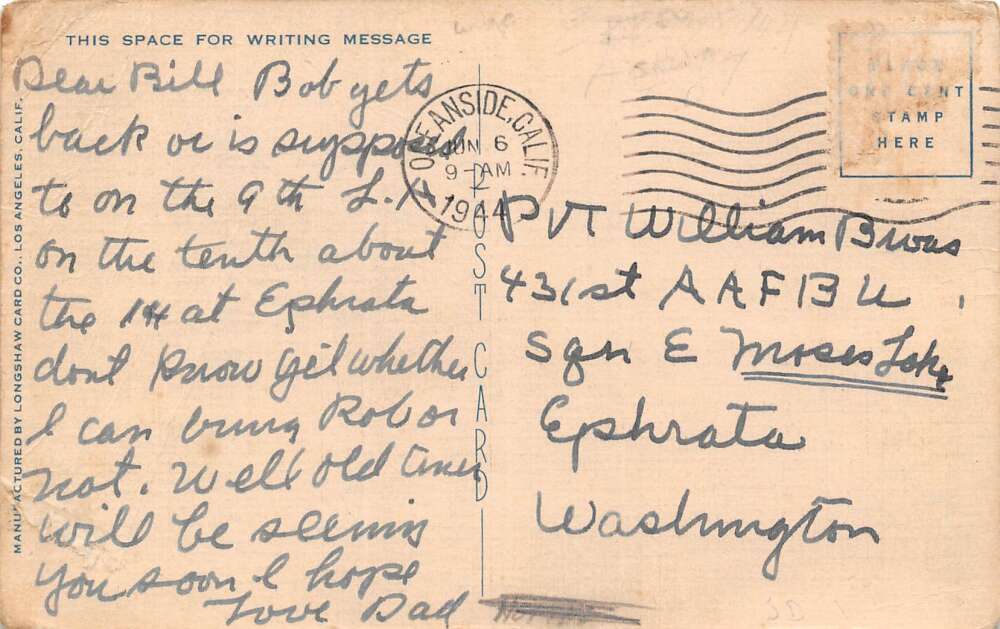 THIS SPACE FOR WRITING MESSAGE
Dear Bill Bob gets
back or is supposed
to on the 9th L.A
on the tenth about
the 14 at Ephrata
dont know yet whether
I can bring Rob or
not. Well old timer
will be seeing
you soon I hope
Love Dad
MANUFACTURED BY LONGSHAW CARD CO., LOS ANGELES, CALIF.
POST CARD
OCEANSIDE, CALIF.
JUN 6
9-AM
1944
PLACE
ONE CENT
STAMP
HERE
PVT William
431st AAFBU
Sqn E Moses Lake
Ephrata
Washington